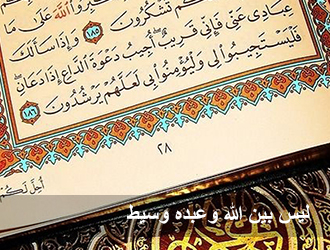 كبروا الله على ما
كم تشكرون ١٨٥ وإذا سألك
عبادي عني فإني قريب أجيب دعوة الداع إذا دعان
فليستجيبوا لي وليؤمنوا بي لعلهم يرشدون ١٨٦
٢٨
أحل لكم
ليس بين الله وعبده وسيط